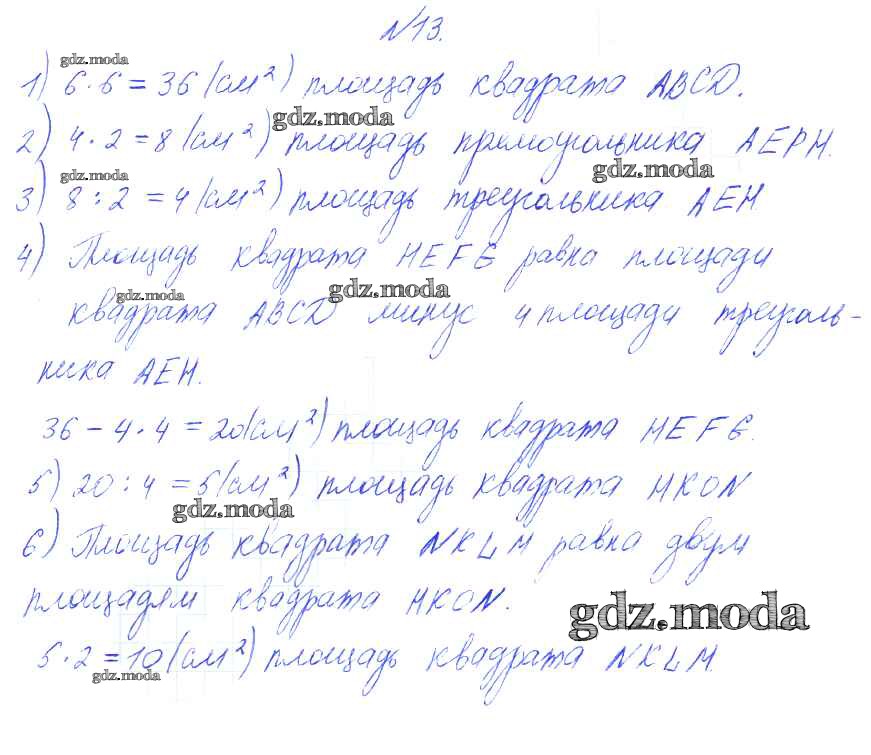 №13.
gdz.moda
1) 6·6 = 36 (см²) площадь квадрата ABCD.
gdz.moda
2) 4·2 = 8 (см²) площадь прямоугольника AEPH.
gdz.moda
gdz.moda
3) 8:2 = 4 (см²) площадь треугольника AEH
4) Площадь квадрата HEFG равна площади
gdz.moda
gdz.moda
квадрата ABCD минус 4 площади треуголь-
ника AEH.
36 - 4·4 = 20 (см²) площадь квадрата HEFG.
5) 20:4 = 5 (см²) площадь квадрата HKON
gdz.moda
6) Площадь квадрата NKLM равна двум
площадям квадрата HKON.
gdz.moda
5·2 = 10 (см²) площадь квадрата NKLM.
gdz.moda